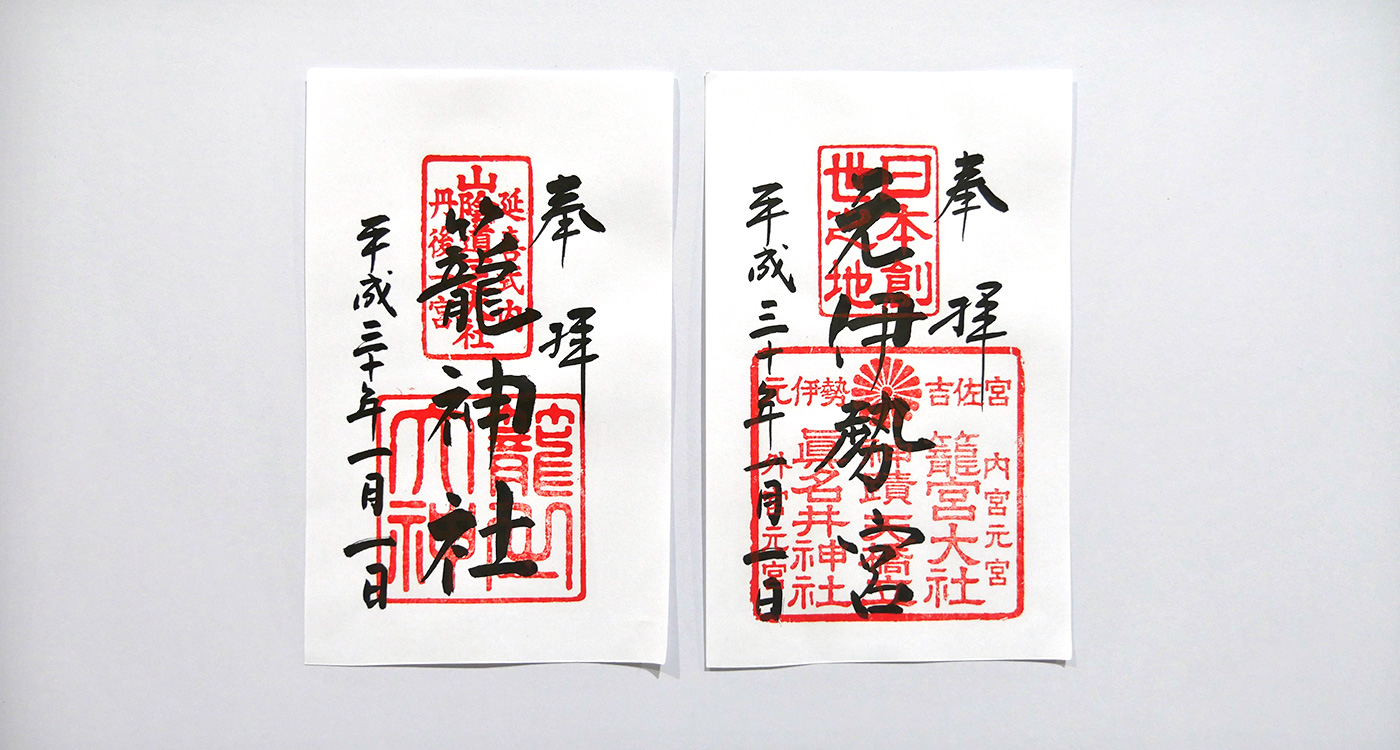 奉拝
延喜式内
山陰道
大社
丹後一宮
籠神社
籠之
大神
平成三十年一月一日
奉拝
日本創
世之地
元伊勢宮
元伊勢 吉佐宮
内宮元宮
籠宮大社
神蹟天橋立
眞名井神社
外宮元宮
平成三十年一月一日